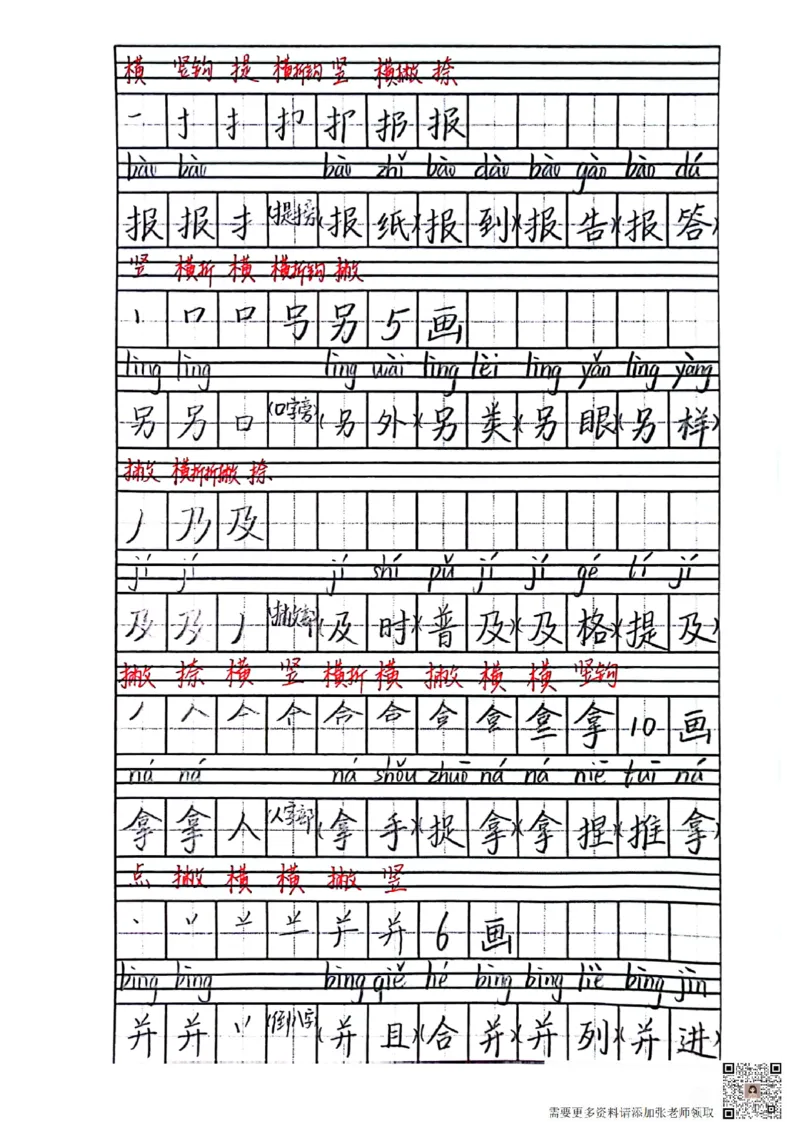 横 竖钩 提 横折钩 竖 横撇 捺
一 扌 扌 报
bào bào bào zhǐ bào dào bào gào bào dá
报 报 扌 (提手旁) (报 纸) (报 到) (报 告) (报 答)
竖 横折 横 横折钩 撇
丨 口 口 另 5 画
lìng lìng lìng wài lìng lèi lìng yǎn lìng yàng
另 另 口 (口字旁) (另 外) (另 类) (另 眼) (另 样)
撇 横折折撇 捺
丿 乃 及
jí jí jí shí pǔ jí jí gé tí jí
及 及 丿 (撇部) (及 时) (普 及) (及 格) (提 及)
撇 捺 横 竖 横折 横 撇 横 横 竖钩
丿 人 亼 合 合 拿 10 画
ná ná ná shǒu zhuō ná ná niē tuī ná
拿 拿 人 (人字部) (拿 手) (捉 拿) (拿 捏) (推 拿)
点 撇 横 横 撇 竖
丶 丷 并 6 画
bìng bìng bìng qiě hé bìng bìng liè bìng jìn
并 并 丷 (倒八字) (并 且) (合 并) (并 列) (并 进)
需要更多资料请添加张老师领取